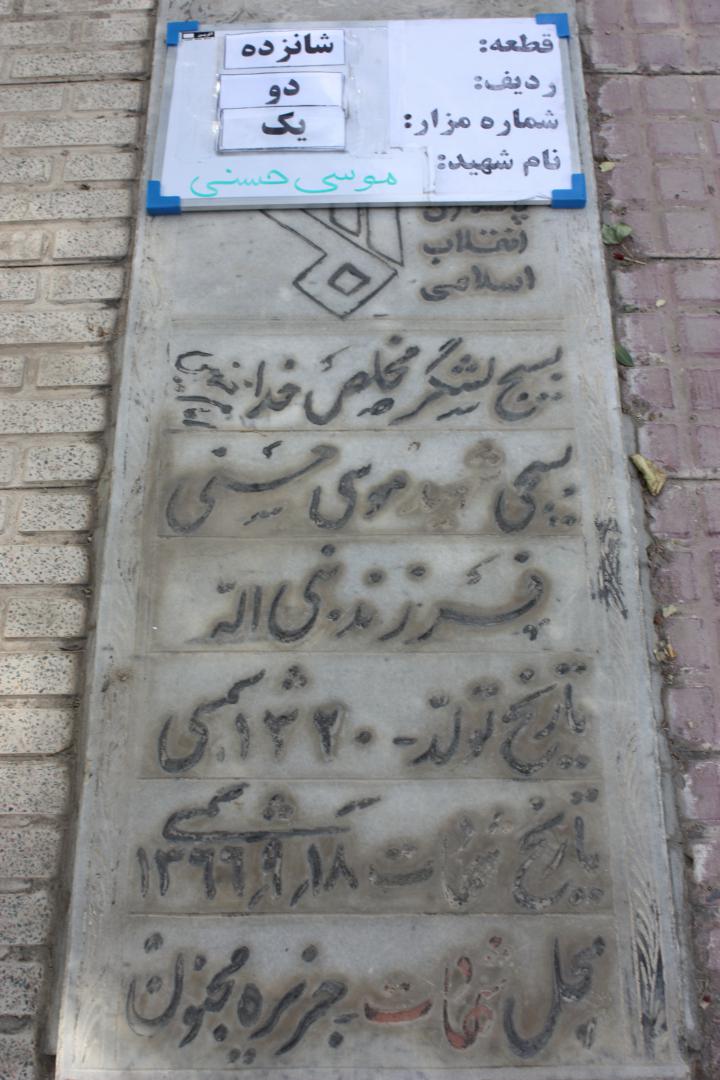 قطعه: شانزده
ردیف: دو
شماره مزار: یک
نام شهید: موسی حسنی
پاسداران
انقلاب
اسلامی
بسیج لشگر مخلص خداست
بسیجی شهید موسی حسنی
فرزند نبی اله
تاریخ تولد - ۱۳۲۰ شمسی
تاریخ شهادت ۱۳۶۶٫۹٫۱۸ شمسی
محل شهادت - جزیره مجنون